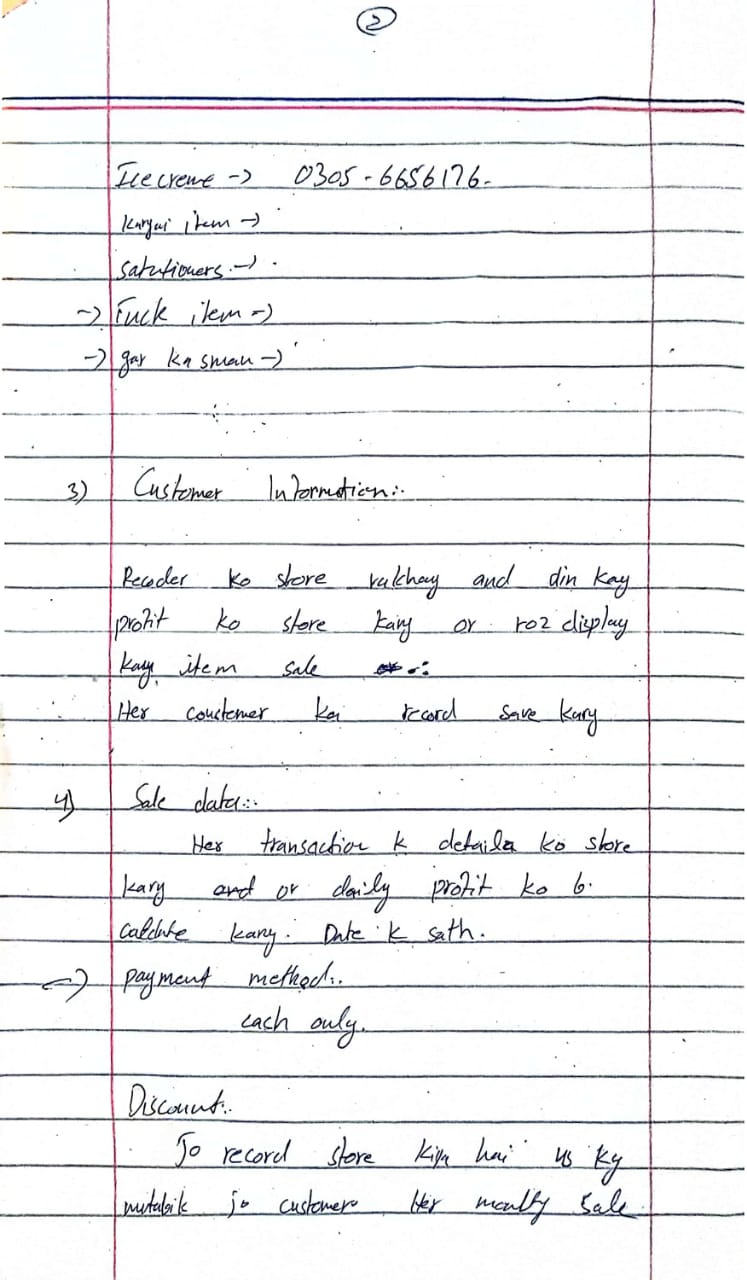 2
Ice creme -> 0305-6656176-
Karyai item ->
Satutioners. ->
-> Fuck item ->
-> gar ka sman ->
3) Customer Information:.
Recoder ko store rakhay and din kay
profit ko store kary or roz display
kary item sale
Her coustemer ka record save kary
4) Sale data:.
Her transaction k details ko store
kary and or daily profit ko b.
calclute kary. Date k sath.
payment method:.
cach only.
Discount:.
Jo record store kiya hai us ky
mutabik jo customer Her monthly Sale